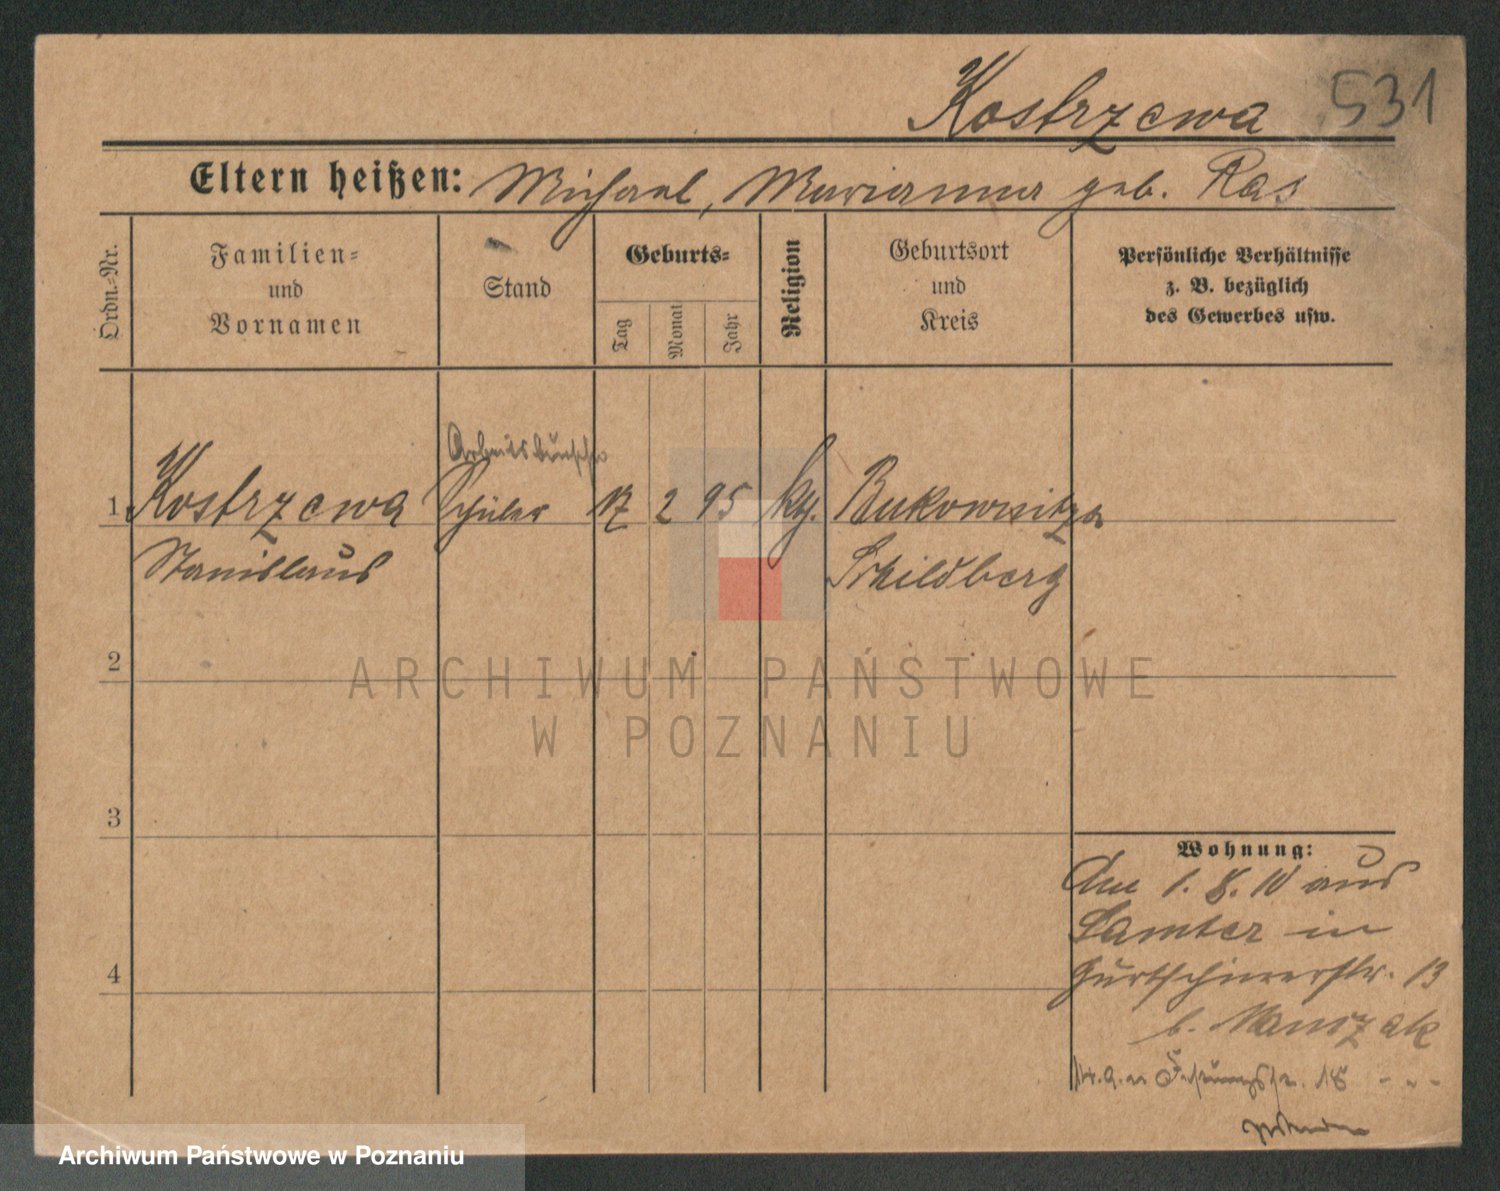 Kostrzewa 531
Eltern heißen: Michael, Marianna geb. Ras
Ordn.-Nr.
Familien-
und
Vornamen
Stand
Geburts-
Tag
Monat
Jahr
Religion
Geburtsort
und
Kreis
Persönliche Verhältnisse
z. B. bezüglich
des Gewerbes usw.
Arbeitsbursche
1 Kostrzewa Schüler 17 2 95 kth. Bukownitza
Stanislaus Schildberg
2
ARCHIWUM PAŃSTWOWE
W POZNANIU
3
Wohnung:
Am 1. 8. 10 aus
Samter in
Gurtschinerstr. 13
b.
4
18
Archiwum Państwowe w Poznaniu